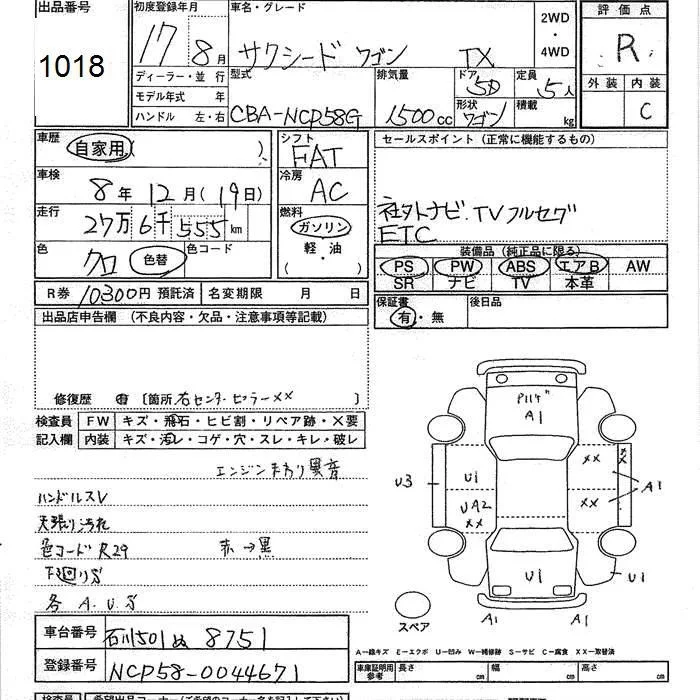 出品番号
1018
初度登録年月
17 8月
車名・グレード
サクシード ワゴン TX
2WD
・
4WD
評価点
R
外装 内装
C
ディーラー・並行
モデル年式 年
ハンドル 左・右
型式
CBA-NCP58G
排気量
1500cc
ドア
5D
形状
ワゴン
定員
5人
積載
kg
車歴
自家用 ( )
シフト
FAT
セールスポイント (正常に機能するもの)
社外ナビ.TVフルセグ
ETC
車検
8年 12月(19日)
冷房
AC
走行
27万6千555km
燃料
ガソリン
軽・油
( ・ )
色
クロ 色替
色コード
装備品 (純正品に限る)
PS PW ABS エアB AW
SR ナビ TV 本革
R券 10300円 預託済 名変期限 月 日
保証書
有・無
後日品
出品店申告欄 (不良内容・欠品・注意事項等記載)
修復歴 有 〔箇所 右センターピラーXX 〕
検査員
記入欄
FW キズ・飛石・ヒビ割・リペア跡・X要
内装 キズ・汚レ・コゲ・穴・スレ・キレ・破レ
エンジンまわり異音
ハンドルスレ
天張り汚れ
色コード R29 赤→黒
下廻りサビ
各 A.U.S
A1
U3
U1
UA2
XX
XX
XX
XX
A1
U1
U1
A1
A1
スペア
A−線キズ E−エクボ U−凹み W−補修跡 S−サビ C−腐食 XX−取替済
車台番号
石川501ぬ8751
登録番号
NCP58-0044671
車庫証明用
参考
長さ cm
幅 cm
高さ cm